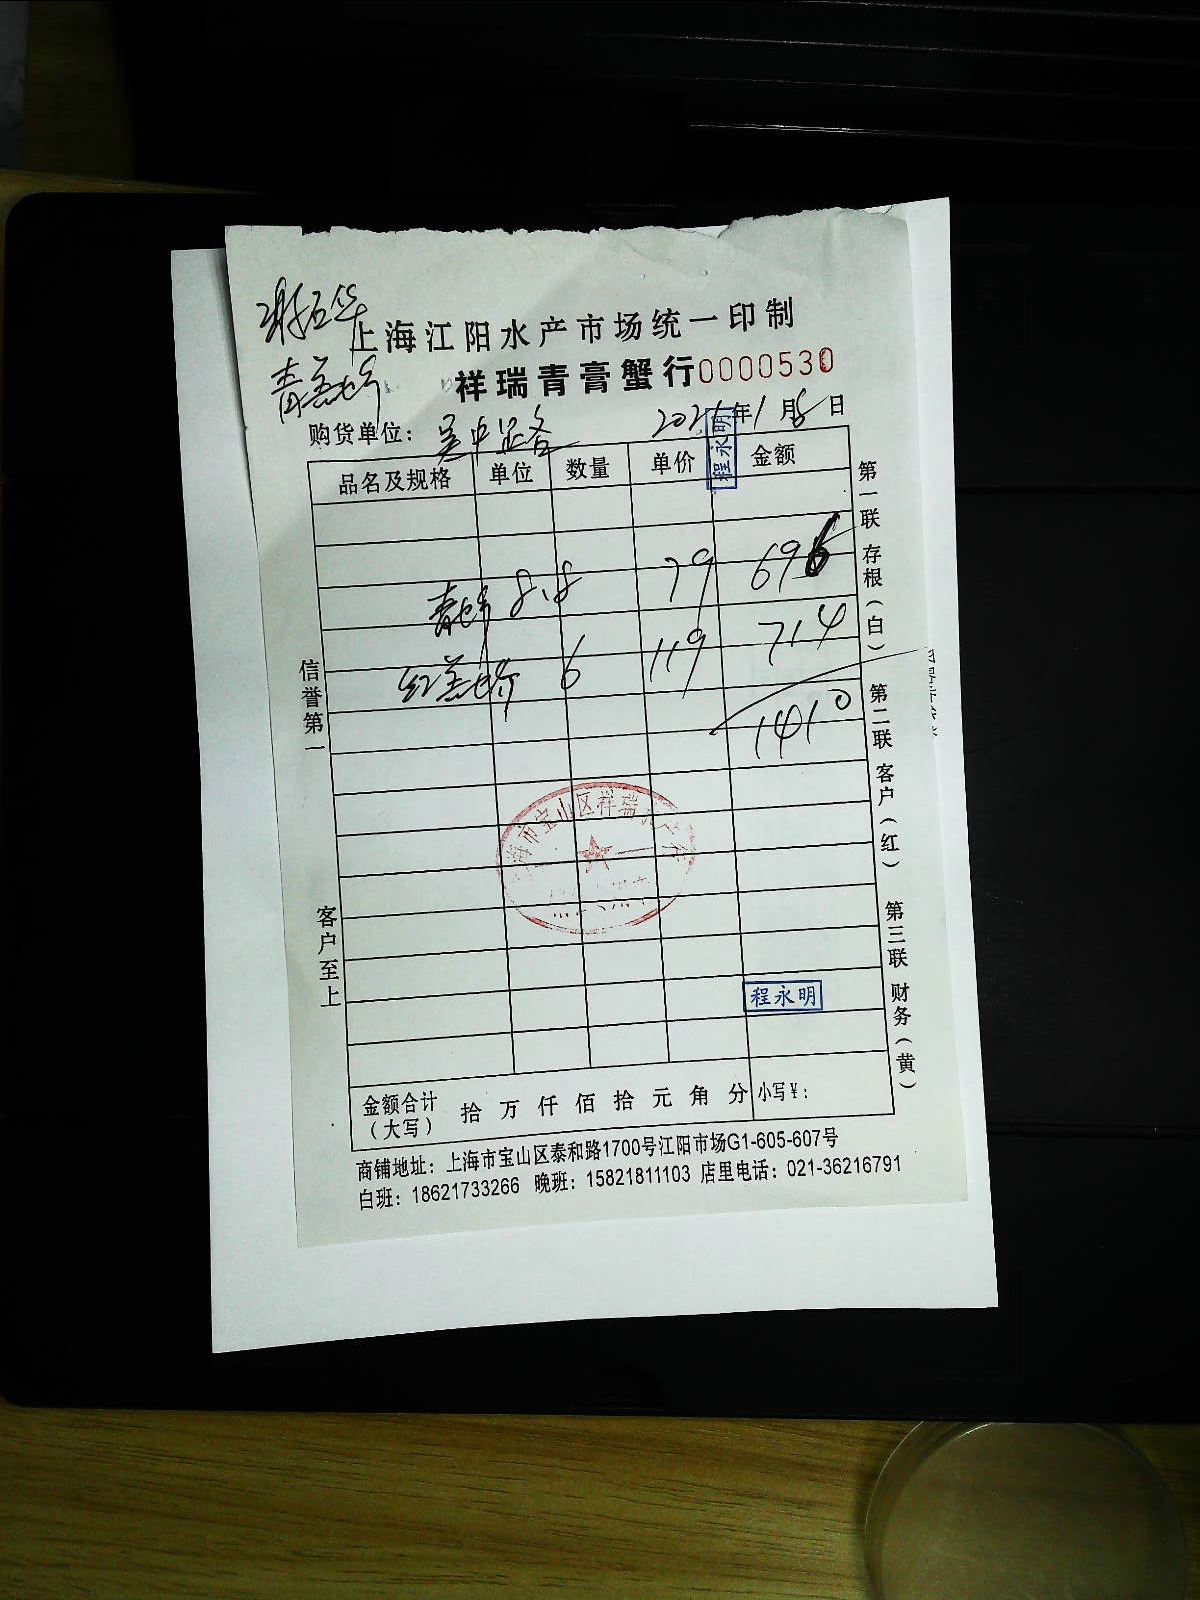 上海江阳水产市场统一印制
青羔蟹 祥瑞青膏蟹行0000530
购货单位： 2021年1月8日
品名及规格 单位 数量 单价 金额
程永明
青蟹 8.8 79 696
红羔蟹 6 119 714
1410
上海市宝山区祥瑞水产行
程永明
金额合计（大写） 拾 万 仟 佰 拾 元 角 分 小写￥：
商铺地址：上海市宝山区泰和路1700号江阳市场G1-605-607号
白班：18621733266 晚班：15821811103 店里电话：021-36216791
信誉第一 客户至上
第一联 存根（白） 第二联 客户（红） 第三联 财务（黄）